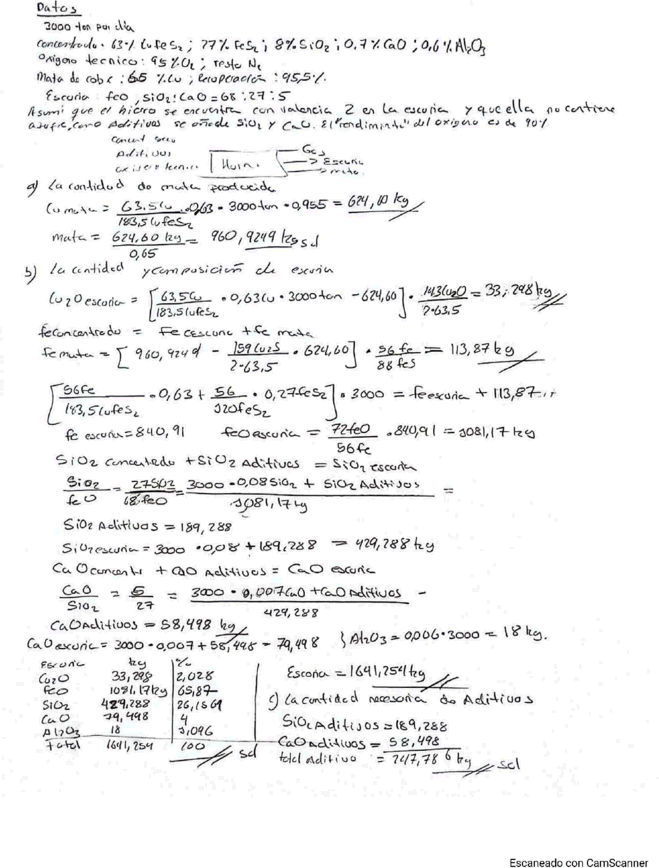 Datos
3000 ton por dia
concentrado · 63% CuFeS2 ; 27% FeS2 ; 8% SiO2 ; 0,7% CaO ; 0,6% Al2O3
Oxigeno tecnico : 95% O2 ; resto N2
Mata de cobre : 65 % Cu ; Recuperacion : 95,5%.
Escoria : feo, SiO2 : CaO = 68 : 27 : 5
Asumi que el hierro se encuentra con valencia 2 en la escoria y que ella no contiene
azufre, como aditivos se añade SiO2 y CaO. El "rendimiento" del oxigeno es de 90%
concent seco
Aditivos
oxigeno tecnico
Horno
Gas
Escoria
mata
a) La cantidad de mata producida
Cu mata = 63.5Cu / 183,5CuFeS2 · 0,63 · 3000 ton · 0,955 = 624,60 kg
mata = 624,60 kg / 0,65 = 960,9249 kg sol
b) La cantidad y composicion de escoria
Cu2O escoria = [63,5Cu / 183,5CuFeS2 · 0,63Cu · 3000 ton - 624,60] · 143Cu2O / 2·63.5 = 33,298 kg
fe concentrado = Fe escoria + Fe mata
Fe mata = [960,9249 - 159Cu2S / 2·63,5 · 624,60] · 56 fe / 88 feS = 113,87 kg
[56Fe / 183,5CuFeS2 · 0,63 + 56 / 120FeS2 · 0,27FeS2] · 3000 = fe escoria + 113,87
fe escoria = 840,91 feO escoria = 72feO / 56fe · 840,91 = 1081,17 kg
SiO2 concentrado + SiO2 Aditivos = SiO2 escoria
SiO2 / feO = 27SiO2 / 68 feO = 3000 · 0,08SiO2 + SiO2 Aditivos / 1081,17 kg =
SiO2 Aditivos = 189,288
SiO2 escoria = 3000 · 0,08 + 189.288 = 429,288 kg
CaO concent + CaO Aditivos = CaO escoria
CaO / SiO2 = 5 / 27 = 3000 · 0,007CaO + CaO Aditivos / 429,288 -
CaO Aditivos = 58,498 kg
CaO escoria = 3000 · 0,007 + 58,498 = 79,498 } Al2O3 = 0,006 · 3000 = 18 kg.
Escoria kg %
Cu2O 33,298 2,028
FeO 1081,17 kg 65,87
SiO2 429,288 26,1561
CaO 79,498 4
Al2O3 18 1,096
Total 1641,254 100 sol
Escoria = 1641,254 kg
c) La cantidad necesaria de Aditivos
SiO2 Aditivos = 189,288
CaO aditivos = 58,498
total aditivo = 247,786 kg sol
Escaneado con CamScanner